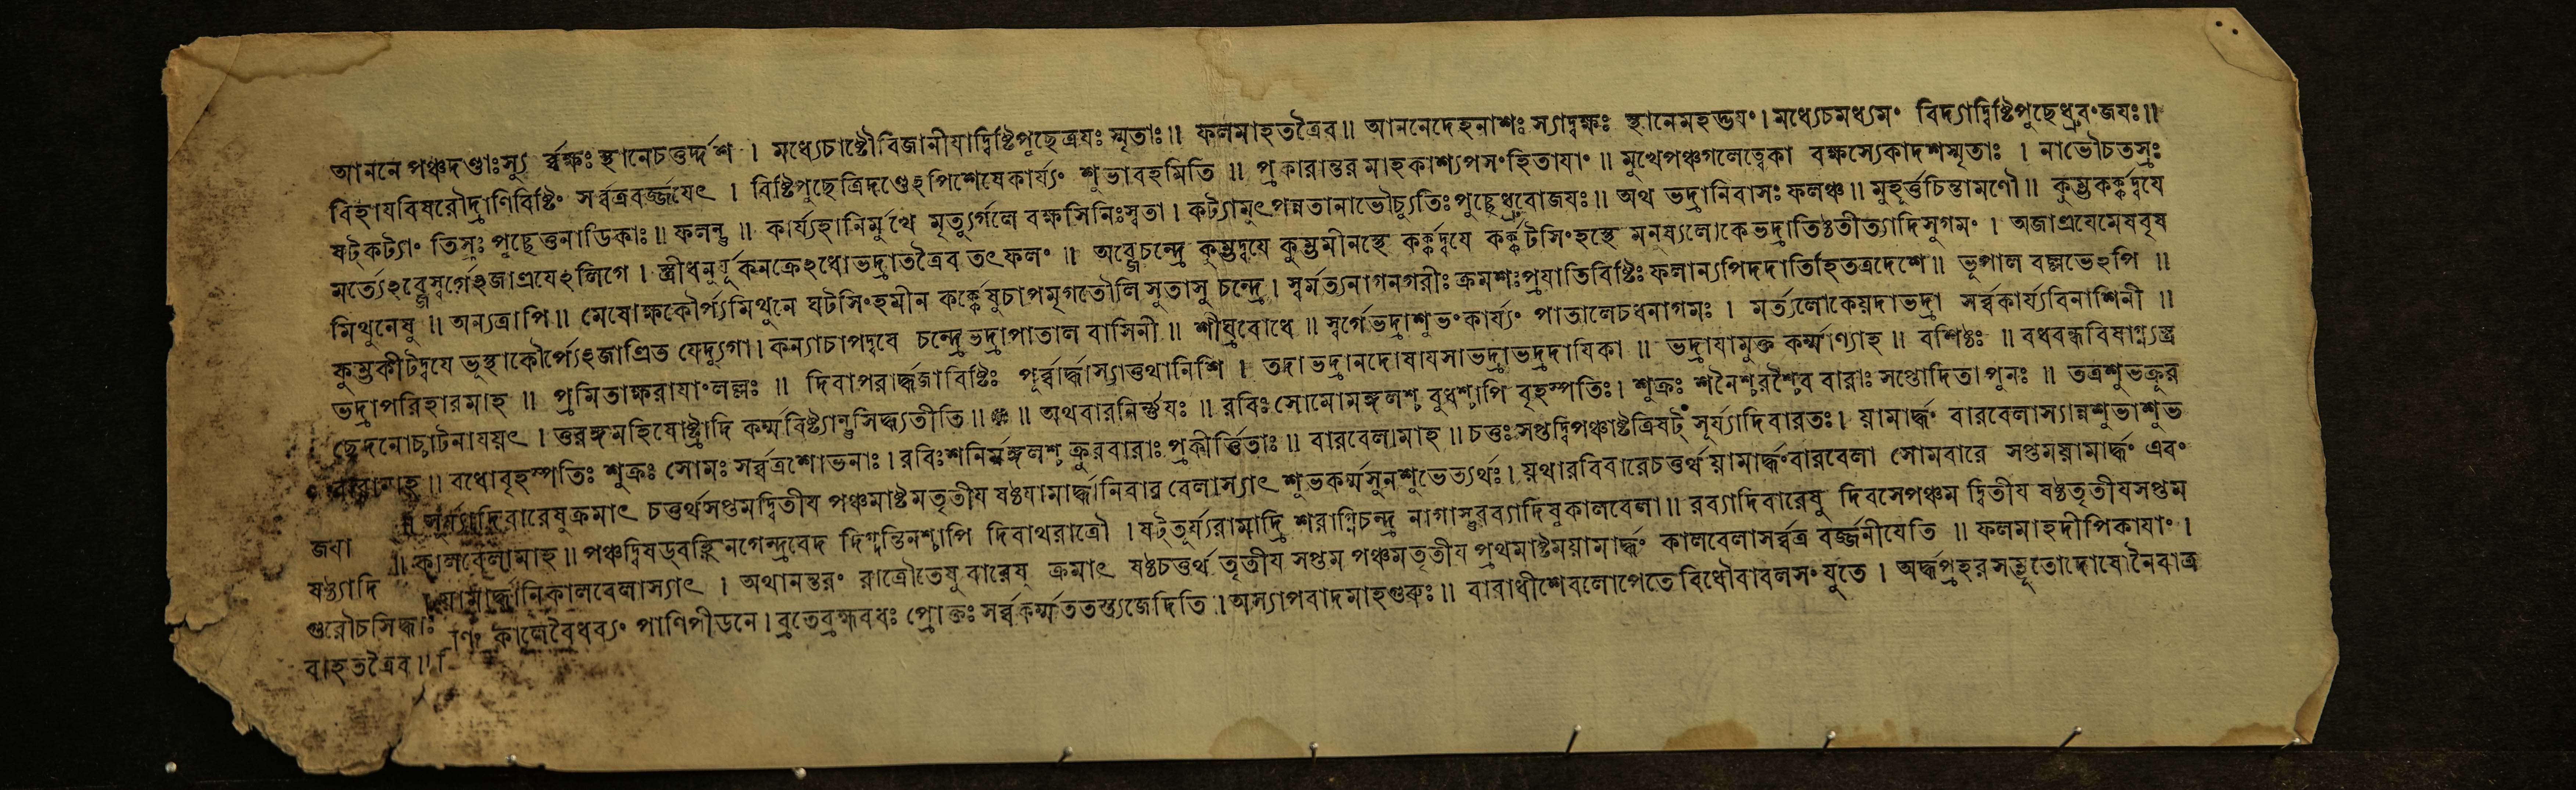 আননে পঞ্চদণ্ডাঃস্যু র্ব্বক্ষঃ স্থানেচতুর্দ্দশ । মধ্যেচাষ্টৌবিজানীয়াদ্বিষ্টিপুছেত্রযঃ স্মৃতাঃ॥ ফলমাহতত্রৈব॥ আননেদেহনাশঃ স্যাদ্বক্ষঃ স্থানেমহদ্ভযং। মধ্যেচমধ্যমং বিদ্যাদ্বিষ্টিপুছেধ্রুবংজযঃ॥
বিহাযবিষরৌদ্রাণিবিষ্টিং সর্ব্বত্রবর্জ্জযেৎ । বিষ্টিপুছেত্রিদণ্ডেঽপিশেষেকার্য্যং শুভাবহমিতি ॥ প্রকারান্তর মাহকাশ্যপসংহিতাযাং ॥ মুখেপঞ্চগলেত্বেকা বক্ষস্যেকাদশস্মৃতাঃ । নাভৌচতস্রঃ
ষট্কট্যাং তিস্রঃ পুচ্ছেতুনাডিকাঃ॥ ফলন্তু ॥ কার্য্যহানির্মুখে মৃত্যুর্গলে বক্ষসিনিঃস্বতা । কট্যামুৎপন্নতানাভৌচ্যুতিঃপুচ্ছেধ্রুবোজযঃ॥ অথ ভদ্রানিবাসঃ ফলঞ্চ॥ মুহূর্ত্তচিন্তামণৌ॥ কুম্ভকর্ক্কদ্বযে
মর্ত্যেঽব্জেস্বর্গেঽজাত্রযেঽলিগে । স্ত্রীধনুর্যূকনক্রেঽধোভদ্রাতত্রৈব তৎফলং ॥ অব্জেচন্দ্রে কুম্ভদ্বযে কুম্ভমীনস্থে কর্ক্কদ্বযে কর্ক্কটসিংহস্থে মনুষ্যলোকেভদ্রাতিষ্ঠতীত্যাদিসুগমং । অজাত্রযেমেষবৃষ
মিথুনেষু ॥ অন্যত্রাপি॥ মেষোক্ষকৌর্প্যমিথুনে ঘটসিংহমীন কর্ক্কেষুচাপমৃগতৌলি সুতাসু চন্দ্রে। স্বর্মত্যনাগনগরীঃ ক্রমশঃপ্রযাতিবিষ্টিঃ ফলান্যপিদদাতিহিতত্রদেশে॥ ভূপাল বল্লভেঽপি ॥
কুম্ভকীটদ্বযে ভূস্থাকৌর্প্যেঽজাত্রিত যেদ্যুগা। কন্যাচাপদ্বযে চন্দ্রে ভদ্রাপাতাল বাসিনী ॥ শীঘ্রবোধে ॥ স্বর্গেভদ্রাশুভংকার্য্যং পাতালেচধনাগমঃ । মর্ত্যলোকেয়দাভদ্রা সর্ব্বকার্য্যবিনাশিনী ॥
ভদ্রাপরিহারমাহ ॥ প্রমিতাক্ষরাযাংলল্লঃ ॥ দিবাপরার্দ্ধজাবিষ্টিঃ পূর্ব্বার্দ্ধাস্যাত্তথানিশি । তদাভদ্রানদোষাযসাভদ্রাভদ্রদাযিকা ॥ ভদ্রাযামুক্ত কর্ম্মাণ্যাহ ॥ বশিষ্ঠঃ ॥ বধবন্ধবিষাগ্ন্যস্ত্র
ছেদনোচ্চাটনাযয়ৎ । তুরঙ্গমহিষোষ্ট্রাদি কর্ম্মবিষ্ট্যান্তুসিদ্ধ্যতীতি॥ ॥ অথবারনির্ণযঃ ॥ রবিঃসোমোমঙ্গলশ্চ বুধশ্চাপি বৃহস্পতিঃ। শুক্রঃ শনৈশ্চরশ্চৈব বারাঃ সপ্তোদিতাপুনঃ ॥ তত্রশুভক্রূর
বারানাহ ॥ বধোবৃহস্পতিঃ শুক্রঃ সোমঃ সর্ব্বত্রশোভনাঃ। রবিঃশনির্মঙ্গলশ্চ ক্রূরবারাঃ প্রকীর্ত্তিতাঃ॥ বারবেলামাহ ॥ চতুঃসপ্তদ্বিপঞ্চাষ্টত্রিষট্ সূর্য্যাদিবারতঃ। য়ামার্দ্ধং বারবেলাস্যান্নশুভাশুভ
সূর্য্যাদিবারেষুক্রমাৎ চতুর্থসপ্তমদ্বিতীয পঞ্চমাষ্টমতৃতীয ষষ্ঠযামার্দ্ধানিবার বেলাস্যাৎ শুভকর্ম্মসুনশুভেত্যর্থঃ। য়থারবিবারেচতুর্থয়ামার্দ্ধংবারবেলা সোমবারে সপ্তময়ামার্দ্ধং এবং
জযা ॥ কালবেলামাহ ॥ পঞ্চদ্বিষড্বহ্নিনগেন্দ্রবেদ দিগ্দন্তিনশ্চাপি দিবাথরাত্রৌ । ষট্তূর্য্যরামাদ্রি শরাগ্নিচন্দ্র নাগাস্তুরব্যাদিষুকালবেলা॥ রব্যাদিবারেষু দিবসেপঞ্চম দ্বিতীয ষষ্ঠতৃতীযসপ্তম
ষষ্ঠ্যাদি য়ামার্দ্ধানিকালবেলাস্যাৎ । অথানন্তরং রাত্রৌতেষু বারেষু ক্রমাৎ ষষ্ঠচতুর্থ তৃতীয সপ্তম পঞ্চমতৃতীয প্রথমাষ্টময়ামার্দ্ধং কালবেলাসর্ব্বত্র বর্জ্জনীযেতি ॥ ফলমাহদীপিকাযাং ।
গুরৌচসিদ্ধাঃ কালেবৈধব্যং পাণিপীডনে। ব্রতেব্রহ্মবধঃ প্রোক্তঃ সর্ব্বকর্ম্মততস্ত্যজেদিতি । অস্যাপবাদমাহগুরুঃ॥ বারাধীশেবলোপেতে বিধৌবাবলসংযুতে । অর্দ্ধপ্রহরসম্ভূতোদোষোনৈবাত্র
বাহতত্রৈব॥